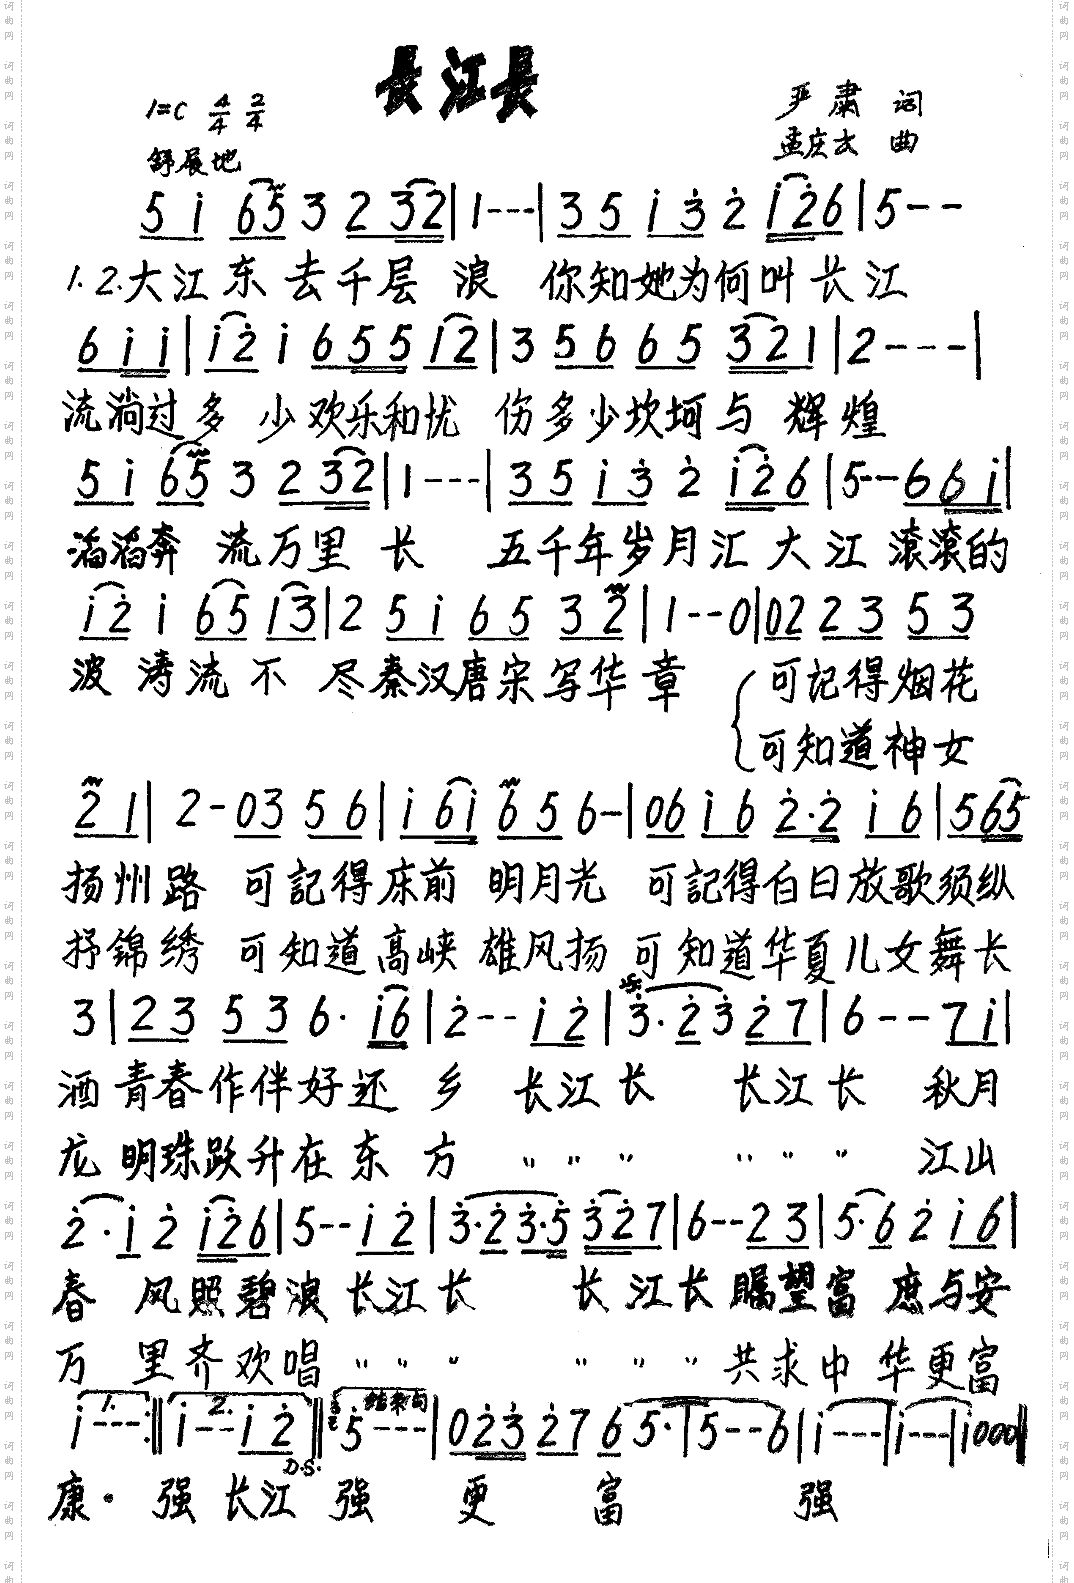 長江長
1=C 4/4 2/4
严肃 词
孟庆云 曲
舒展地
5 i 65 3 2 32 | 1 - - - | 3 5 i 3 2 i26 | 5 - -
1. 2. 大江东去千层浪 你知她为何叫长江
6 i i | i2 i 6 5 5 i2 | 3 5 6 6 5 321 | 2 - - - |
流淌过多少欢乐和忧伤多少坎坷与辉煌
5 i 65 3 2 32 | 1 - - - | 3 5 i 3 2 i26 | 5 - - 6 6 i |
滔滔奔流万里长 五千年岁月汇大江滚滚的
i2 i 65 i3 | 2 5 i 6 5 3 2 | 1 - - 0 | 02 2 3 5 3
波涛流不尽秦汉唐宋写华章 可记得烟花
可知道神女
2 1 | 2 - 03 5 6 | i 6i 6 5 6 - | 06 i 6 2·2 i 6 | 5 65
扬州路 可記得床前明月光 可記得白日放歌须纵
抒錦绣 可知道高峡雄风扬 可知道华夏儿女舞长
3 | 2 3 5 3 6· i6 | 2 - - i 2 | 3·2 3 2 7 | 6 - - 7 i |
酒青春作伴好还乡 长江长 长江长 秋月
龙明珠跃升在东方 〃 〃 〃 〃 〃 〃 江山
2· i 2 i26 | 5 - - i 2 | 3·2 3·5 327 | 6 - - 2 3 | 5·6 2 i 6 |
春风照碧浪长江长 长江长瞩望富庶与安
万里齐欢唱 〃 〃 〃 〃 〃 〃 共求中华更富
1. 2. 结束句
i - - - :|| i - - i 2 || 5 - - - | 0 2 3 2 7 6 5· | 5 - - 6 | i - - - | i - - - | i 0 0 0 ||
D.S.
康· 强长江强 更富强